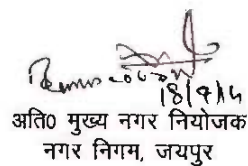 18/9/14
अति0 मुख्य नगर नियोजक
नगर निगम, जयपुर